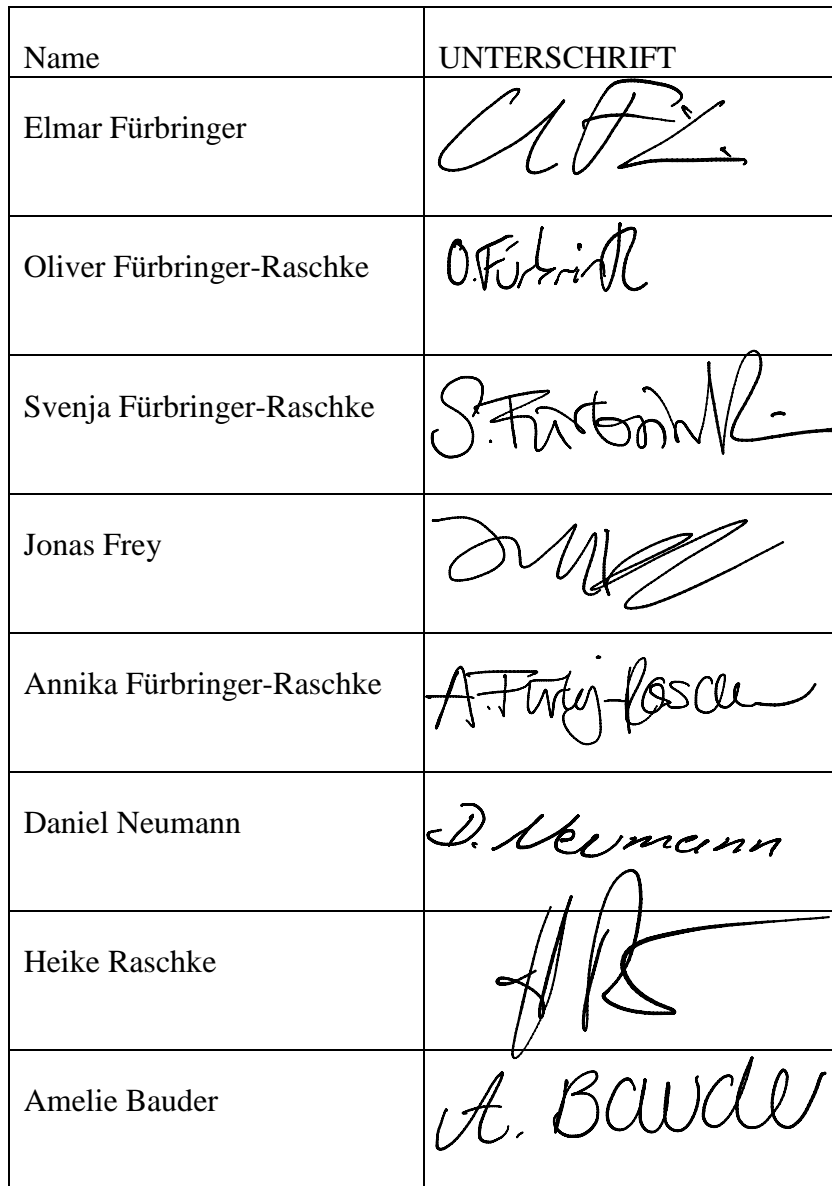 Name UNTERSCHRIFT
Elmar Fürbringer
Oliver Fürbringer-Raschke O.
Svenja Fürbringer-Raschke S.
Jonas Frey
Annika Fürbringer-Raschke
Daniel Neumann D. Neumann
Heike Raschke
Amelie Bauder A. Bauder